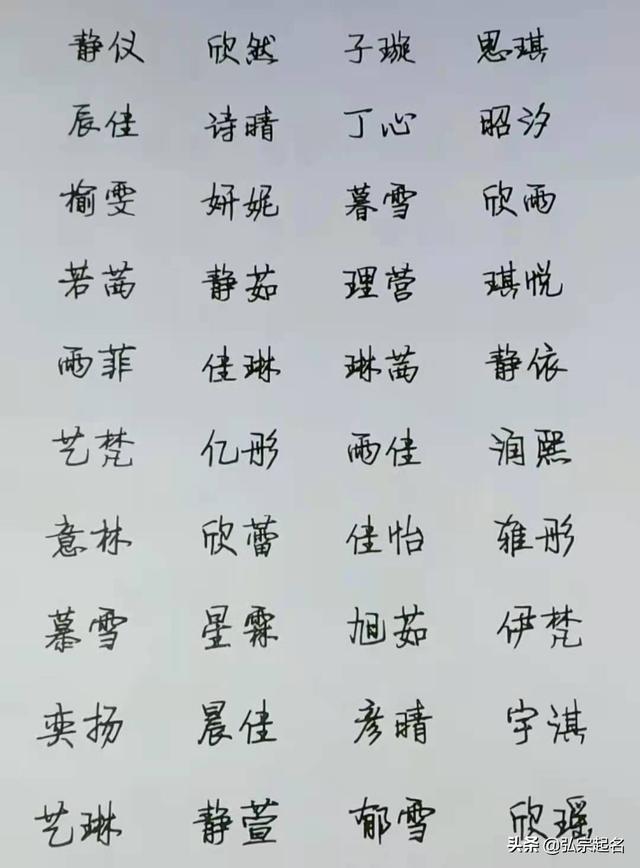 静仪 欣然 子璇 思琪
辰佳 诗晴 丁心 昭汐
榆雯 妍妮 暮雪 欣雨
若茜 静茹 理营 琪悦
雨菲 佳琳 琳茜 静依
艺梵 亿彤 雨佳 润熙
意林 欣蕾 佳怡 雅彤
慕雪 星霖 旭茹 伊梵
奕扬 晨佳 彦晴 宇淇
艺琳 静萱 郁雪 欣瑶
头条 @弘宗起名